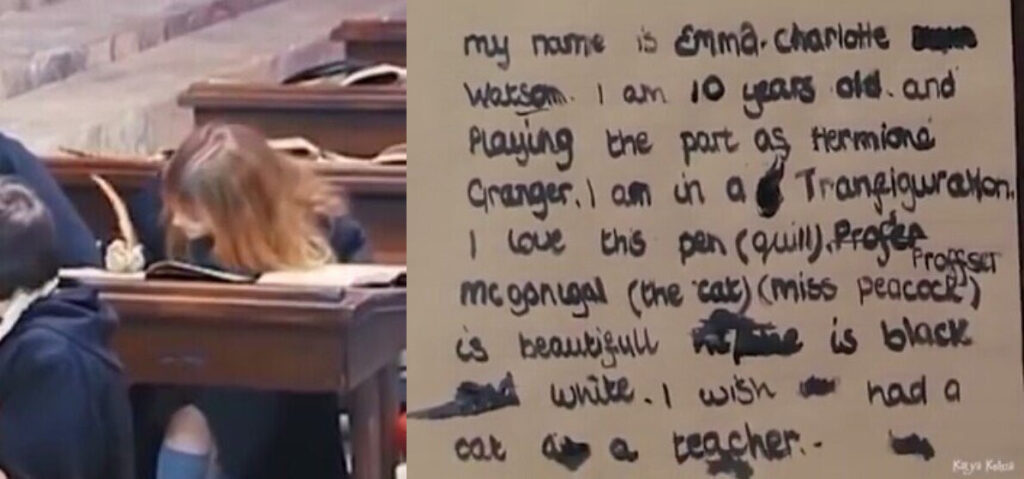 my name is Emma. Charlotte
Watson. I am 10 years old. and
Playing the part as Hermione
Granger. I am in a Tranfiguration.
I love this pen (quill). Profer
Proffser
mcgonigal (the cat) (miss peacock)
is beautifull is black
white. I wish had a
cat a teacher.-
Kaya Kokua